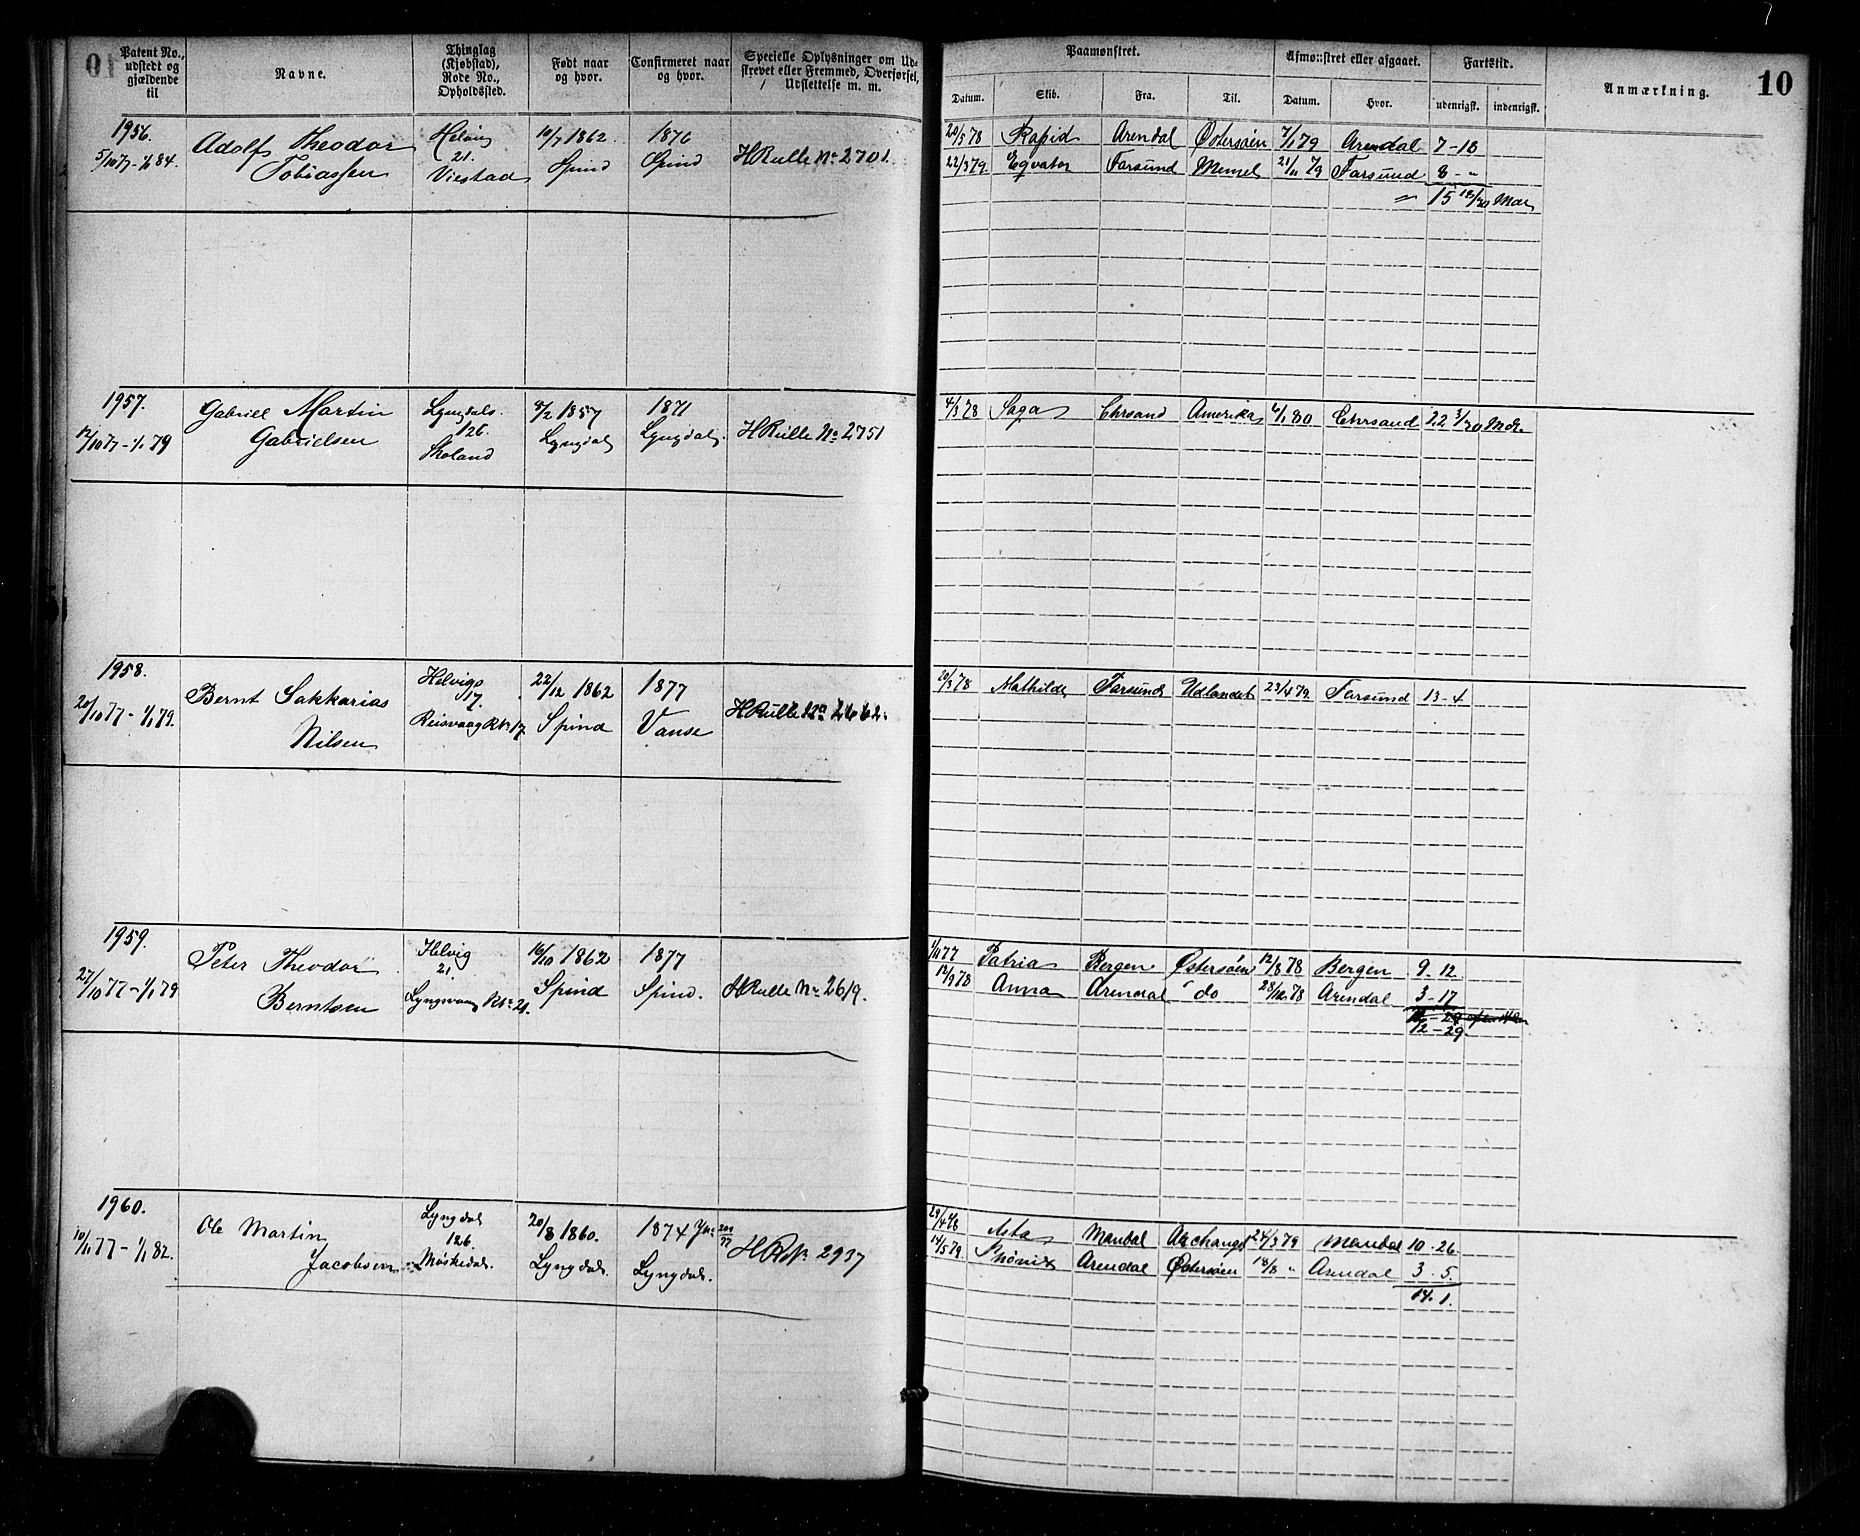 10
Patent No., udstedt og gjældende til
Navne.
Thinglag (Kjøbstad), Rode No., Opholdssted.
Født naar og hvor.
Confirmeret naar og hvor.
Specielle Oplysninger om Udskrevet eller Fremmed, Overførsel, Udslettelse m. m.
Paamønstret.
Datum.
Skib.
Fra.
Til.
Afmønstret eller afgaaet.
Datum.
Hvor.
Fartstid.
udenrigsk.
indenrigsk.
Anmærkning.
10
1956.
5/10 77 - 1/1 84
Adolf Theodor
Tobiassen
Helvig
21.
Viestad
10/7 1862
Spind
1876
Spind
HRulle No 2701.
20/5 78 Rapid Arendal Østersøen 7/1 79 Arendal 7-18
22/3 79. Eqvator Farsund Memel 21/11 79 Farsund 8 - "
" 15 18/30 Mdr
1957.
12/10 77 - 1/1 79
Gabriel Martin
Gabrielsen
Lyngdals.
126.
Skoland
8/2 1857
Lyngdal
1871
Lyngdal.
HRulle No 2751
4/3 78 Saga Chrsand Amerika 6/1 80 Chrsand 22 3/30 Mdr.
1958.
20/10 77 - 1/1 79.
Bernt Sakkarias
Nilsen
Helvigs
17.
Reisvaag Rt. 17
22/12 1862
Spind
1877
Vanse
HRulle No 2662.
20/3 78 Mathilde Farsund Udlandet 23/4 79. Farsund 13-4
1959.
27/10 77 - 1/1 79
Peter Theodor
Berntsen
Helvig
21.
Lyngsvaag Rt. 21.
16/10 1862
Spind
1877
Spind.
HRulle No 2619.
1/11 77 Patria Bergen Østersøen 12/8 78 Bergen 9-12
12/9 78 Anna Arendal do 28/12 78 Arendal 3-17
12-29
1960.
10/11 77 - 1/1 82.
Ole Martin
Jacobsen
Lyngdal
126.
Møskedal.
20/8 1860.
Lyngdal.
1874
Lyngdal.
2937
29/4 78 Asta Mandal Archangel 24/3 79 Mandal 10-26
14/5 79. Phønix Arendal Østersøen 18/8 " Arendal 3-5.
14.1.